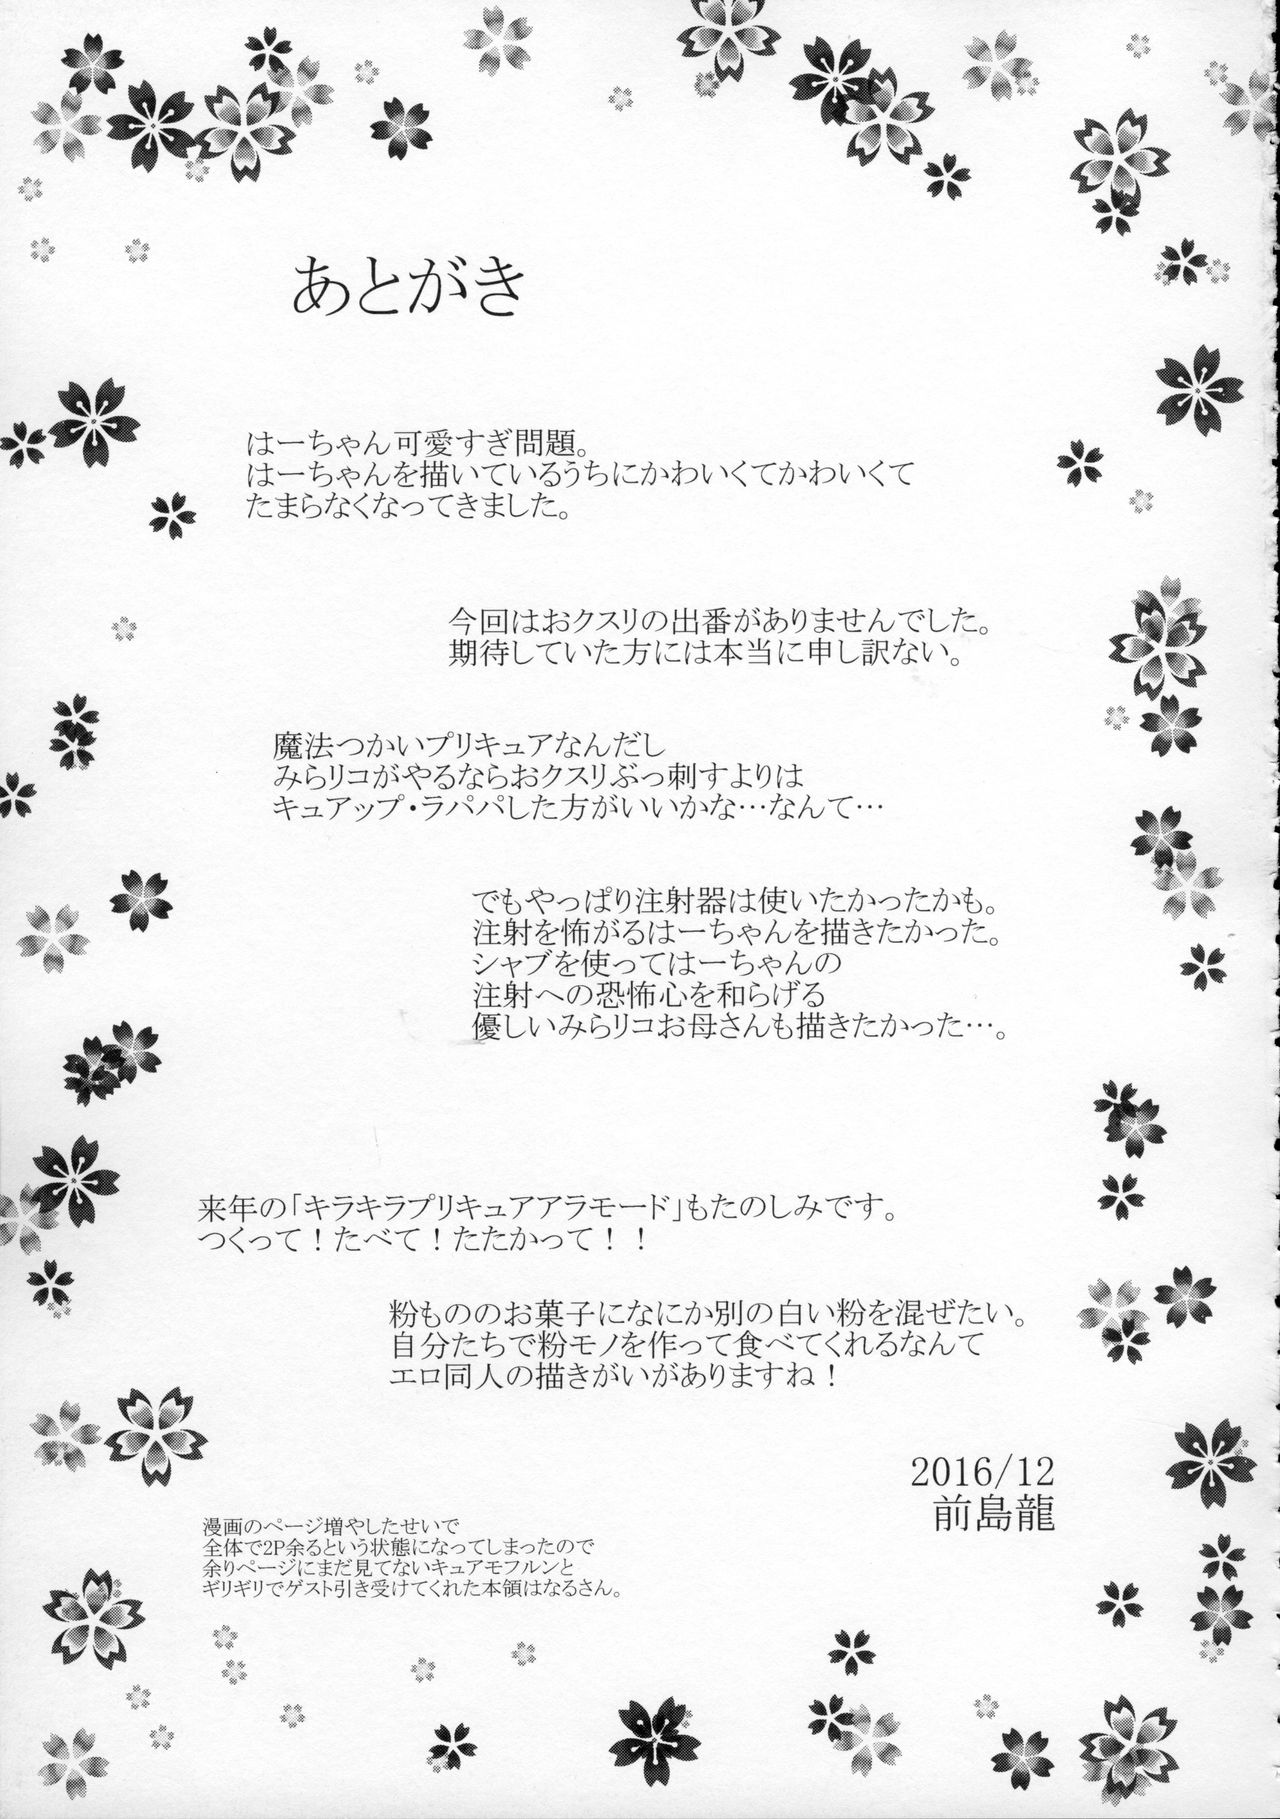 あとがき
はーちゃん可愛すぎ問題。
はーちゃんを描いているうちにかわいくてかわいくて
たまらなくなってきました。
今回はおクスリの出番がありませんでした。
期待していた方には本当に申し訳ない。
魔法つかいプリキュアなんだし
みらリコがやるならおクスリぶっ刺すよりは
キュアップ・ラパパした方がいいかな…なんて…
でもやっぱり注射器は使いたかったかも。
注射を怖がるはーちゃんを描きたかった。
シャブを使ってはーちゃんの
注射への恐怖心を和らげる
優しいみらリコお母さんも描きたかった…。
来年の「キラキラプリキュアアラモード」もたのしみです。
つくって！たべて！たたかって！！
粉もののお菓子になにか別の白い粉を混ぜたい。
自分たちで粉モノを作って食べてくれるなんて
エロ同人の描きがいがありますね！
2016/12
前島龍
漫画のページ増やしたせいで
全体で2P余るという状態になってしまったので
余りページにまだ見てないキュアモフルンと
ギリギリでゲスト引き受けてくれた本領はなるさん。